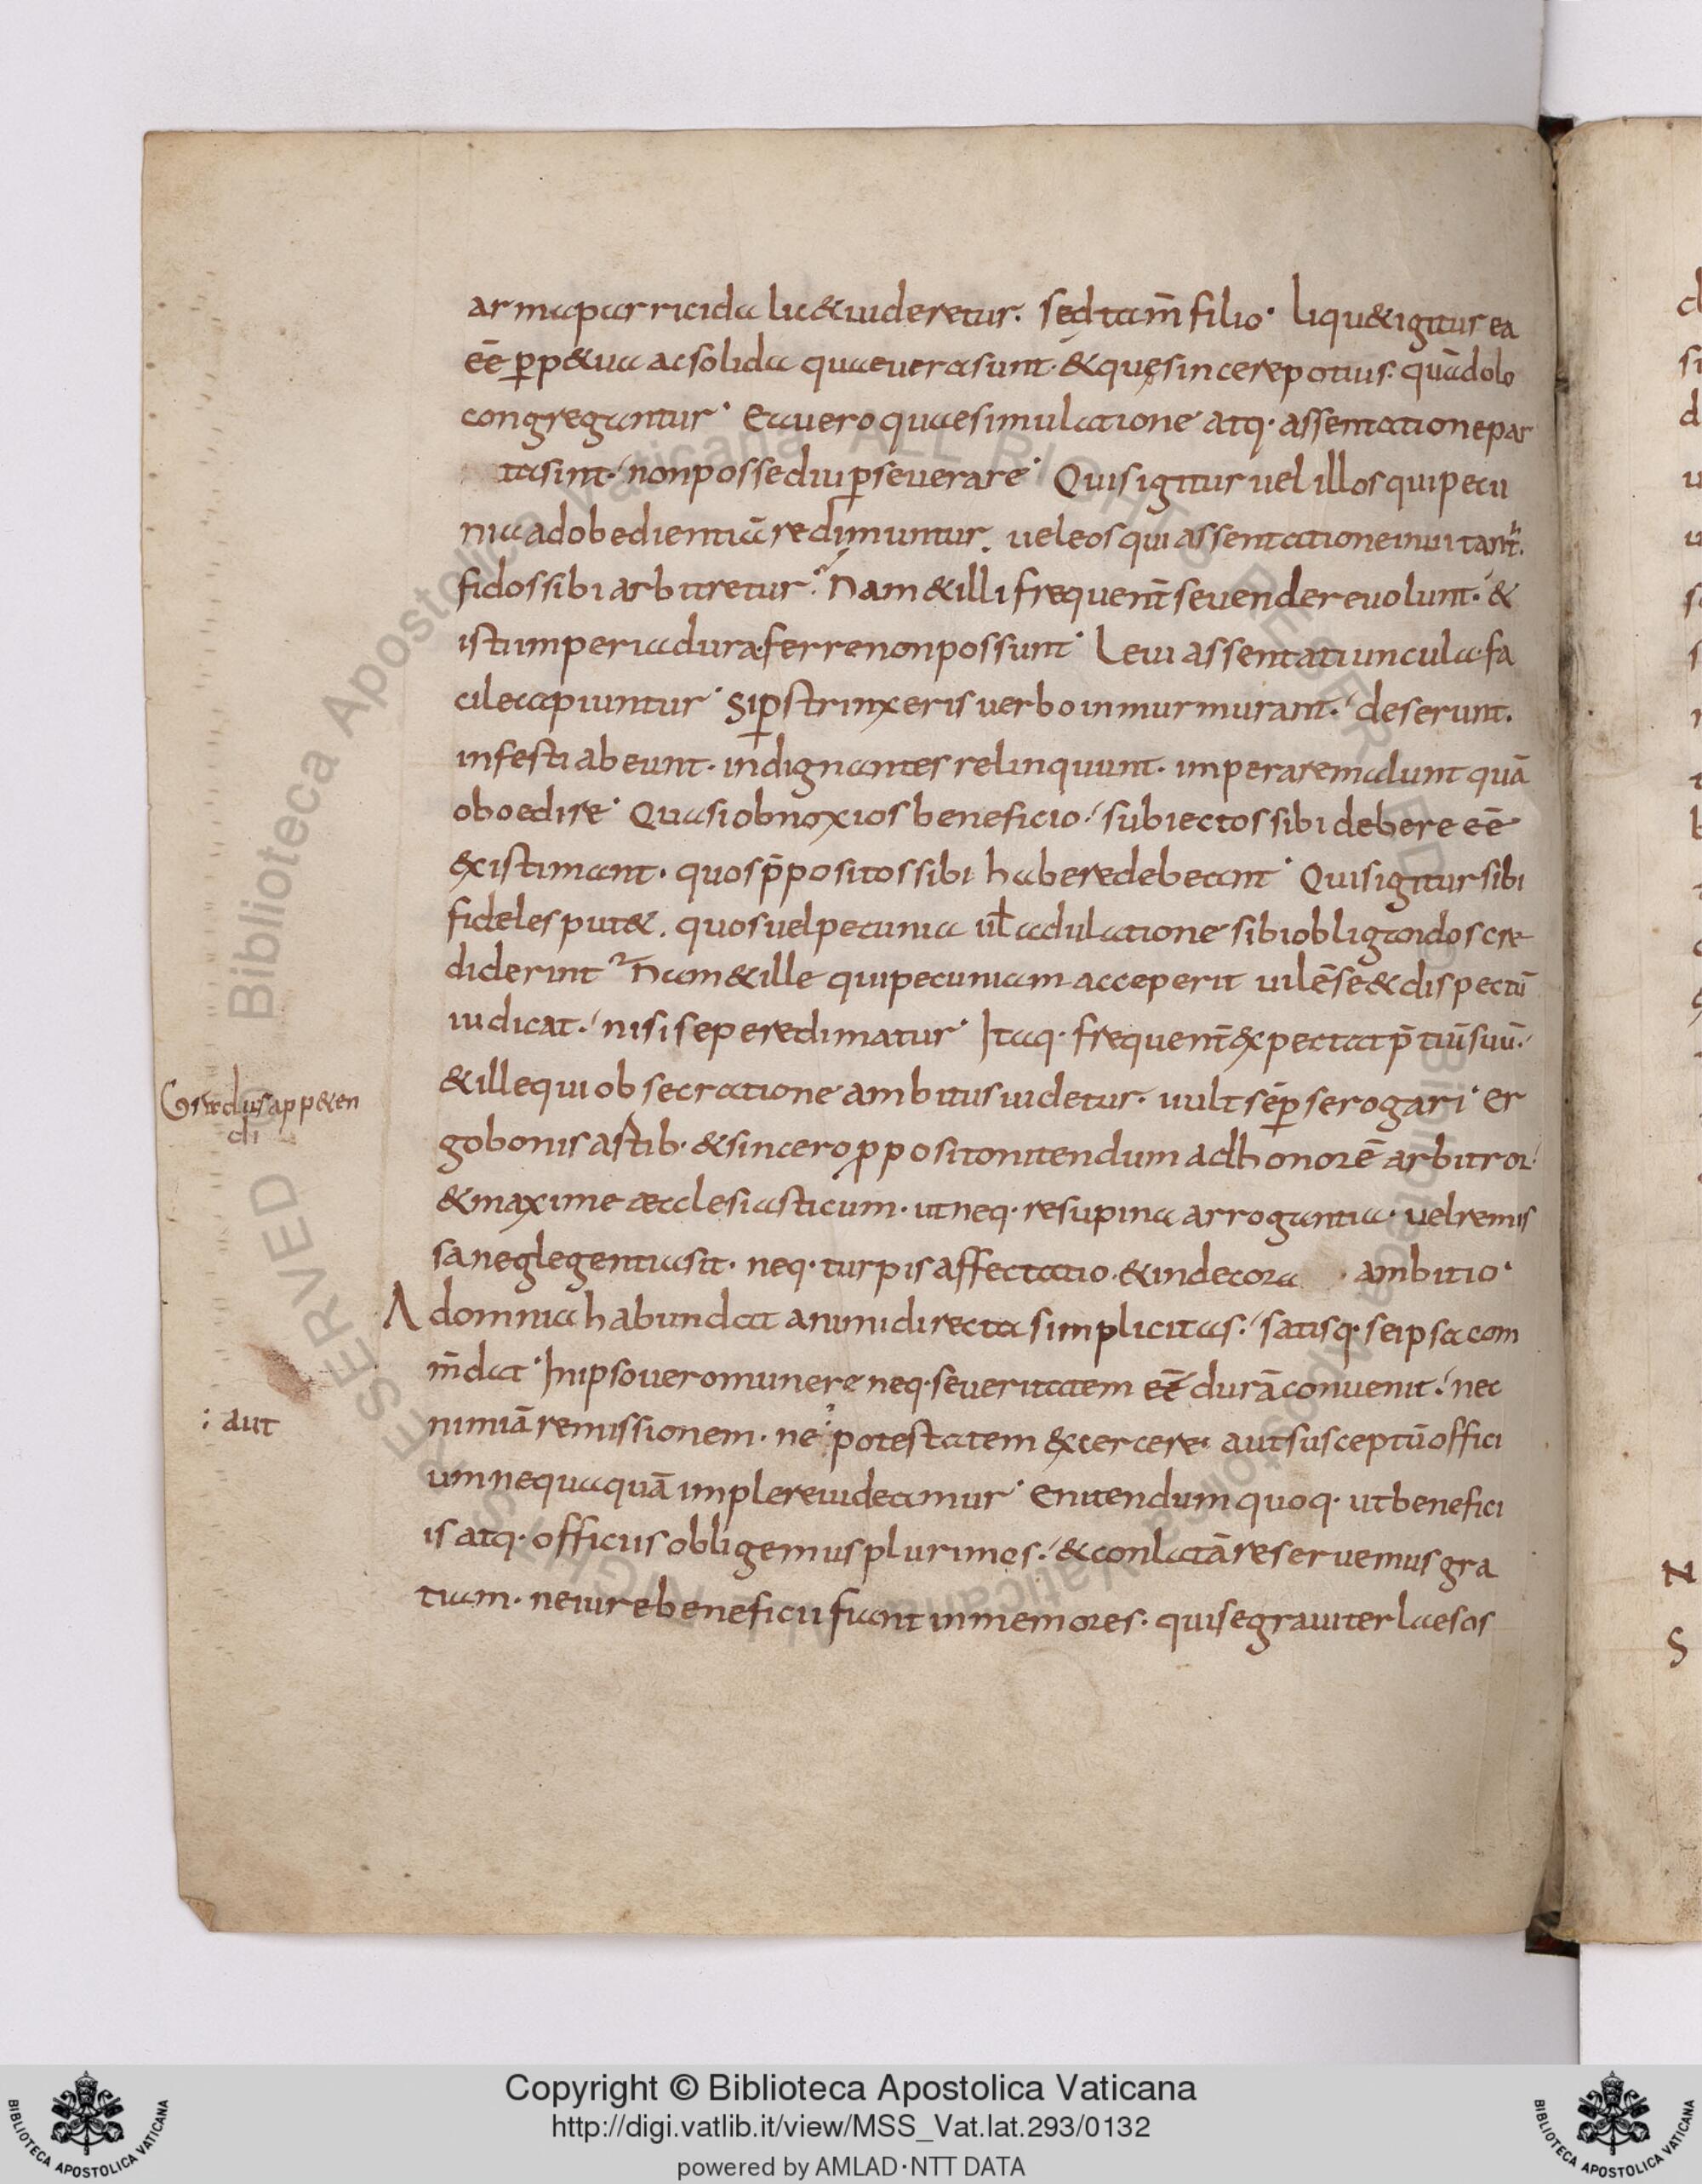 arma parricidalia & uideretur. sed tam̄ filio· liqu& igitur ea
eē p̄p&ua ac solida quae uera sunt· & quę sincere potius· quā dolo
congregantur· Ea uero quae simulatione atq· assentatione par
ta sint· non posse diu p̄seuerare· Quis igitur uel illos qui pecu
nia ad obedientiā redimuntur. uel eos qui assentatione inuitant̄.
fidos sibi arbitretur· Nam & illi frequent̄ se uendere uolunt· &
isti imperia dura ferre non possunt· Leui assentatiuncula fa
cile capiuntur· Si p̄strinxeris uerbo inmurmurant· deserunt.
infesti abeunt· indignantes relinquunt· imperare malunt quā
oboedire· Quasi obnoxios beneficio· subiectos sibi debere eē
&xistimant· quos p̄positos sibi habere debeant· Quis igitur sibi
fideles put&. quos uel pecunia ul̄ adulatione sibi obligandos cre
diderint· Nam & ille qui pecuniam acceperit uilē se & dispectū
iudicat· nisi sepe redimatur· Itaq· frequent̄ &xpectat p̄tiū suū·
& ille qui obsecratione ambitus uidetur· uult sēp̄ se rogari· Er
Gradus app&en
di
go bonis actib· & sincero p̄posito nitendum ad honorē arbitror·
& maxime aecclesiasticum· ut neq· resupina arrogantia· uel remis
sa neglegentia sit· neq· turpis affectatio· & indecora · ambitio·
Ad omnia habundat animi directa simplicitas· satisq· se ipsa com
m̄dat· In ipso uero munere neq· seueritatem eē durā conuenit· nec
: aut
nimiā remissionem· ne : potestatem &xercere· aut susceptū offici
um nequaquā implere uideamur· Enitendum quoq· ut benefici
is atq· officiis obligemus plurimos· & conlatā reseruemus gra
tiam· ne iure beneficii fiant inmemores· qui se grauiter laesos
Copyright © Biblioteca Apostolica Vaticana
http://digi.vatlib.it/view/MSS_Vat.lat.293/0132
powered by AMLAD·NTT DATA